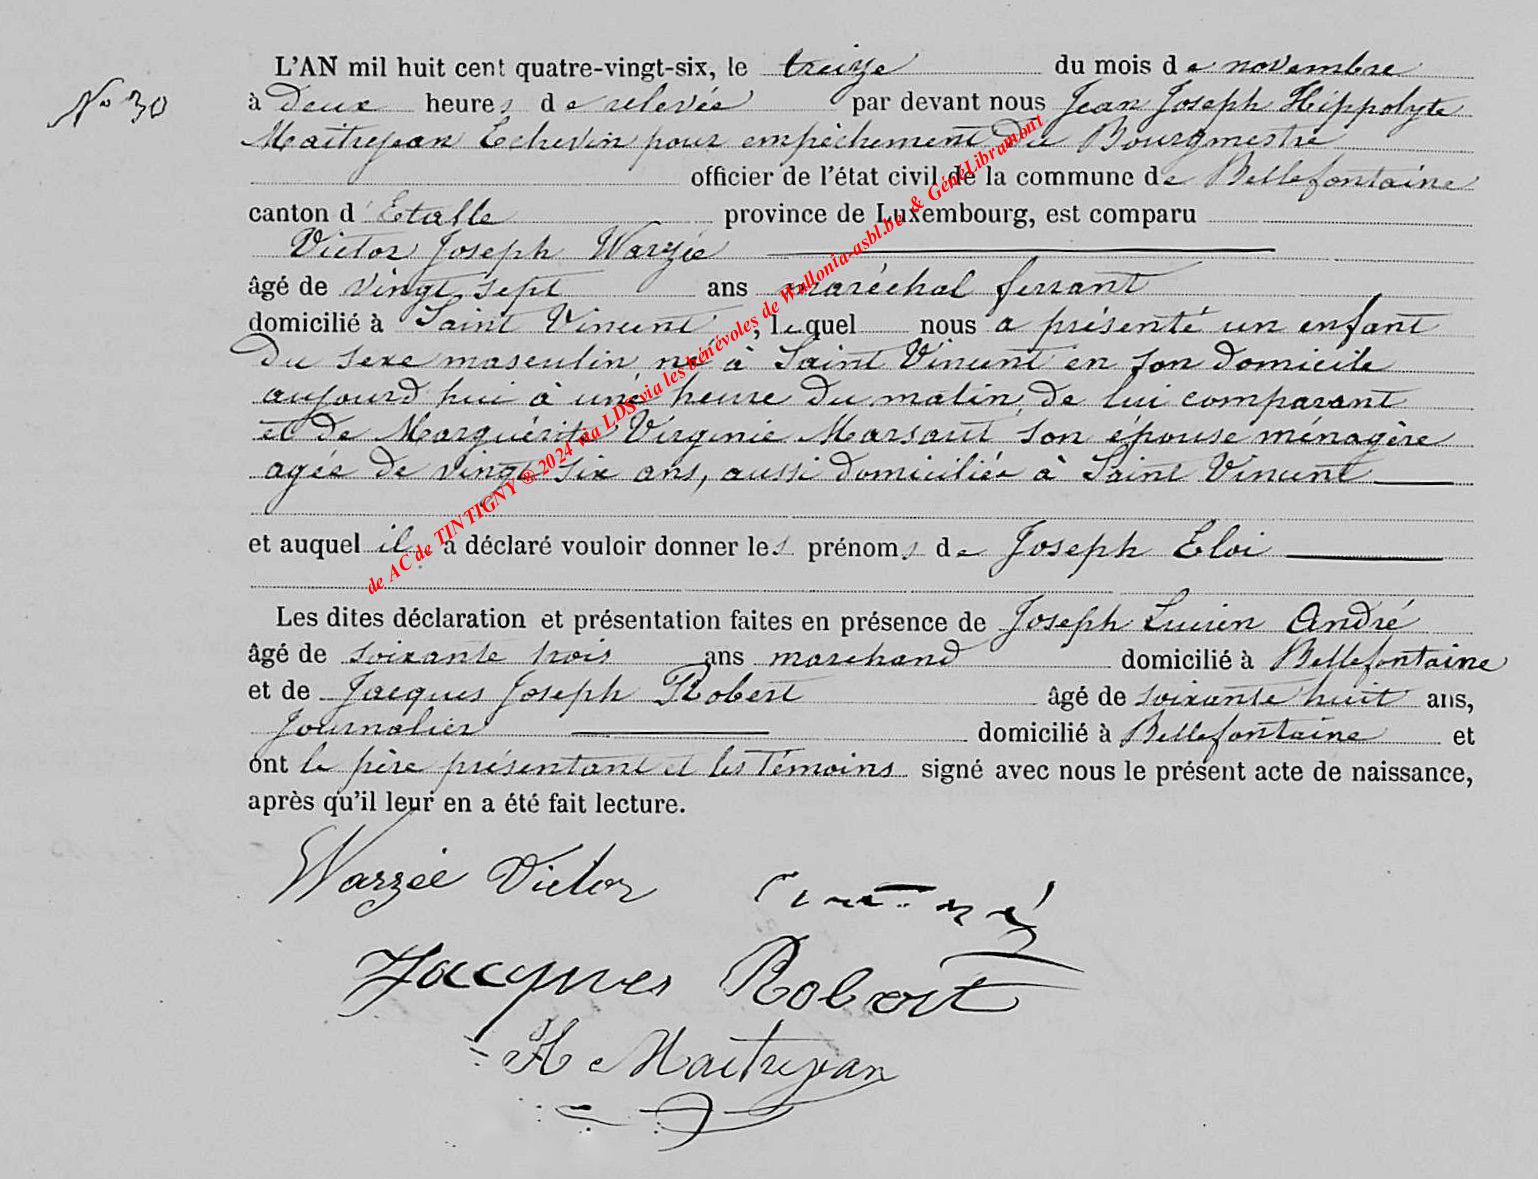 No 30
L'AN mil huit cent quatre-vingt-six, le treize du mois de novembre
à deux heures de relevée par devant nous Jean Joseph Hippolyte
Maitrejean Echevin pour empêchement du Bourgmestre
officier de l'état civil de la commune de Bellefontaine
canton d'Etalle province de Luxembourg, est comparu
Victor Joseph Warzée
âgé de vingt sept ans maréchal ferrant
domicilié à Saint Vincent, lequel nous a présenté un enfant
du sexe masculin né à Saint Vincent en son domicile
aujourd'hui à une heure du matin, de lui comparant
et de Marguérite Virginie Marsaut son épouse ménagère
agée de vingt six ans, aussi domiciliée à Saint Vincent
et auquel il a déclaré vouloir donner les prénoms de Joseph Eloi
Les dites déclaration et présentation faites en présence de Joseph Lucien André
âgé de soixante trois ans marchand domicilié à Bellefontaine
et de Jacques Joseph Robert âgé de soixante huit ans,
Journalier domicilié à Bellefontaine et
ont le père présentant et les témoins signé avec nous le présent acte de naissance,
après qu'il leur en a été fait lecture.
Warzée Victor
Jacques Robert
H Maitrejean
de AC de TINTIGNY ® 2024 via LDS via les bénévoles de Wallonia-asbl.be & GénéLibramont